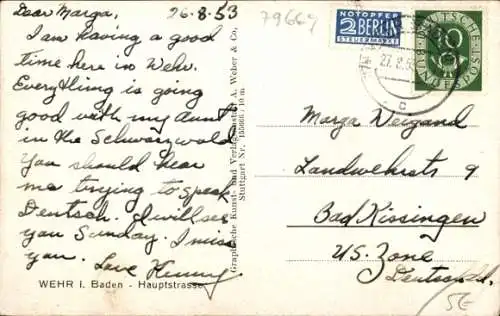 Dear Marga, 26.8.53
I am having a good
time here in Wehr.
Everything is going
good with my aunt
in the Schwarzwald
You should hear
me trying to speak
Deutsch. I will see
you Sunday. I miss
you. Love Kenny
WEHR i. Baden - Hauptstrasse
Graphische Kunst- und Verlagsanstalt A. Weber & Co.,
Stuttgart Nr. 155066/10 m.
79669
NOTOPFER
2 BERLIN
STEUERMARKE
27.8.53
c
10
DEUTSCHE
BUNDESPOST
Marga Weigand
Landwehrstr 9
Bad Kissingen
US. Zone
Deutschld.
5E